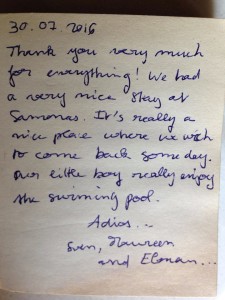 30.07.2016
Thank you very much
for everything! We had
a very nice stay at
Samonas. It's really a
nice place where we wish
to come back some day.
Our little boy really enjoy
the swiming pool.
Adios...
Sven, Maureen
and